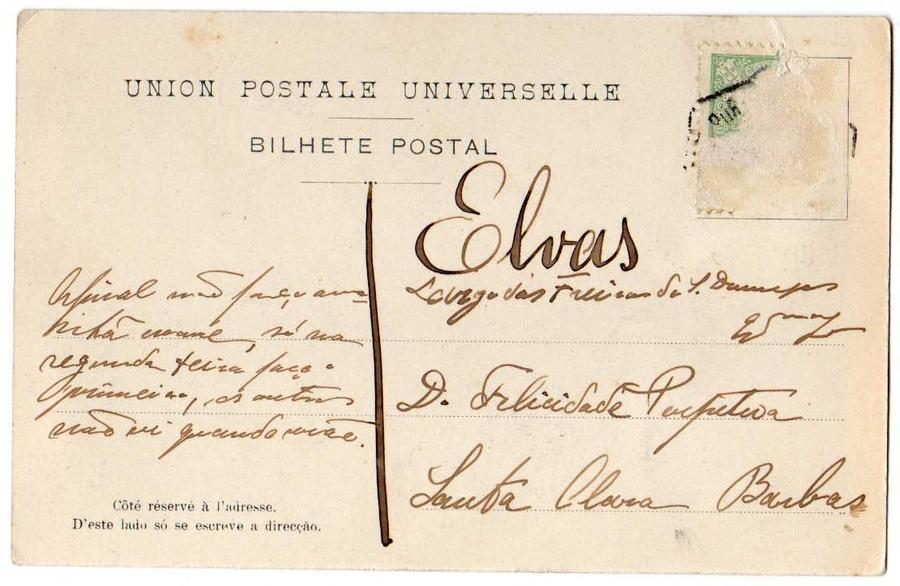 UNION POSTALE UNIVERSELLE
BILHETE POSTAL
Elvas
Largo das Freiras de S. Domingos
Afinal não faço
nhã exame, só na
segunda feira faço o
primeiro, os outros
não vi quando irão.
D. Felicidade Perpetua
Santa Clara Barbas
Côté réservé à l'adresse.
D'este lado só se escreve a direcção.